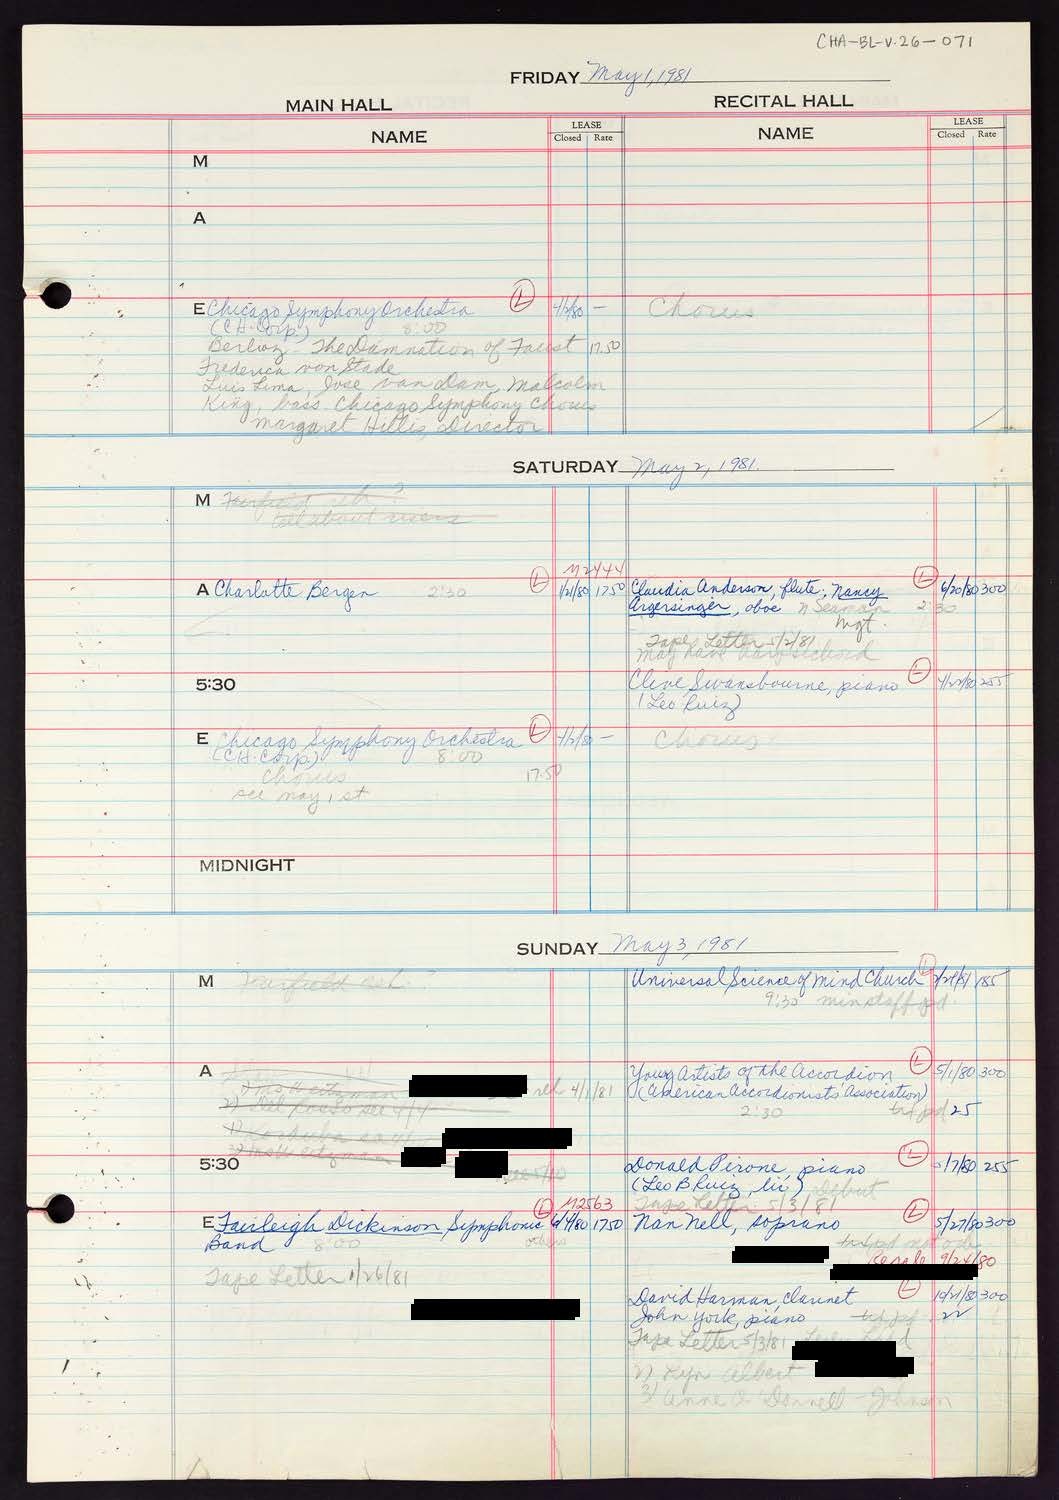 CHA-BL-V.26-071
FRIDAY May 1, 1981
MAIN HALL
RECITAL HALL
NAME
LEASE
Closed Rate
NAME
LEASE
Closed Rate
M
A
E Chicago Symphony Orchestra L 4/2/80 —
(C.H. Corp.) 8:00
Berlioz - The Damnation of Faust 17.50
Frederica von Stade
Luis Lima, Jose van Dam, Malcolm
King, bass. Chicago Symphony Chorus
Margaret Hillis, Director
Chorus
SATURDAY May 2, 1981.
M Fairfield ?
A Charlotte Bergen 2:30 L M2444 1/21/80 1750
Claudia Anderson, flute; Nancy L 6/20/80 300
Argersinger, oboe n Seaman 2:30
Mgt.
Tape Letter 5/2/81
may have harpsichord
5:30
Clive Swansbourne, piano L 4/22/80 255
(Leo Ruiz)
E Chicago Symphony Orchestra L 4/2/80 —
(C.H. Corp.) 8:00
Chorus 17.50
see may 1st
Chorus
MIDNIGHT
SUNDAY May 3, 1981
M Fairfield ?
Universal Science of Mind Church L 2/24/81 185
9:30 min staff pd.
A
reh 4/1/81
Young Artists of the Accordion L 5/1/80 300
(American Accordionists' Association)
2:30 pd 25
5:30
Donald Pirone, piano L /7/80 255
(Leo B Ruiz, liv) Debut
Tape Letter 5/3/81
E Fairleigh Dickinson Symphonic L M2563 6/4/80 1750
Band 8:00
Tape Letter 1/26/81
Nan Nell, soprano L 5/27/80 300
9/24/80
David Harman, clarinet L 10/21/80 300
John York, piano
Tape Letter 5/3/81
2) Lyn Albert
3) Anne O'Donnell-Johnson